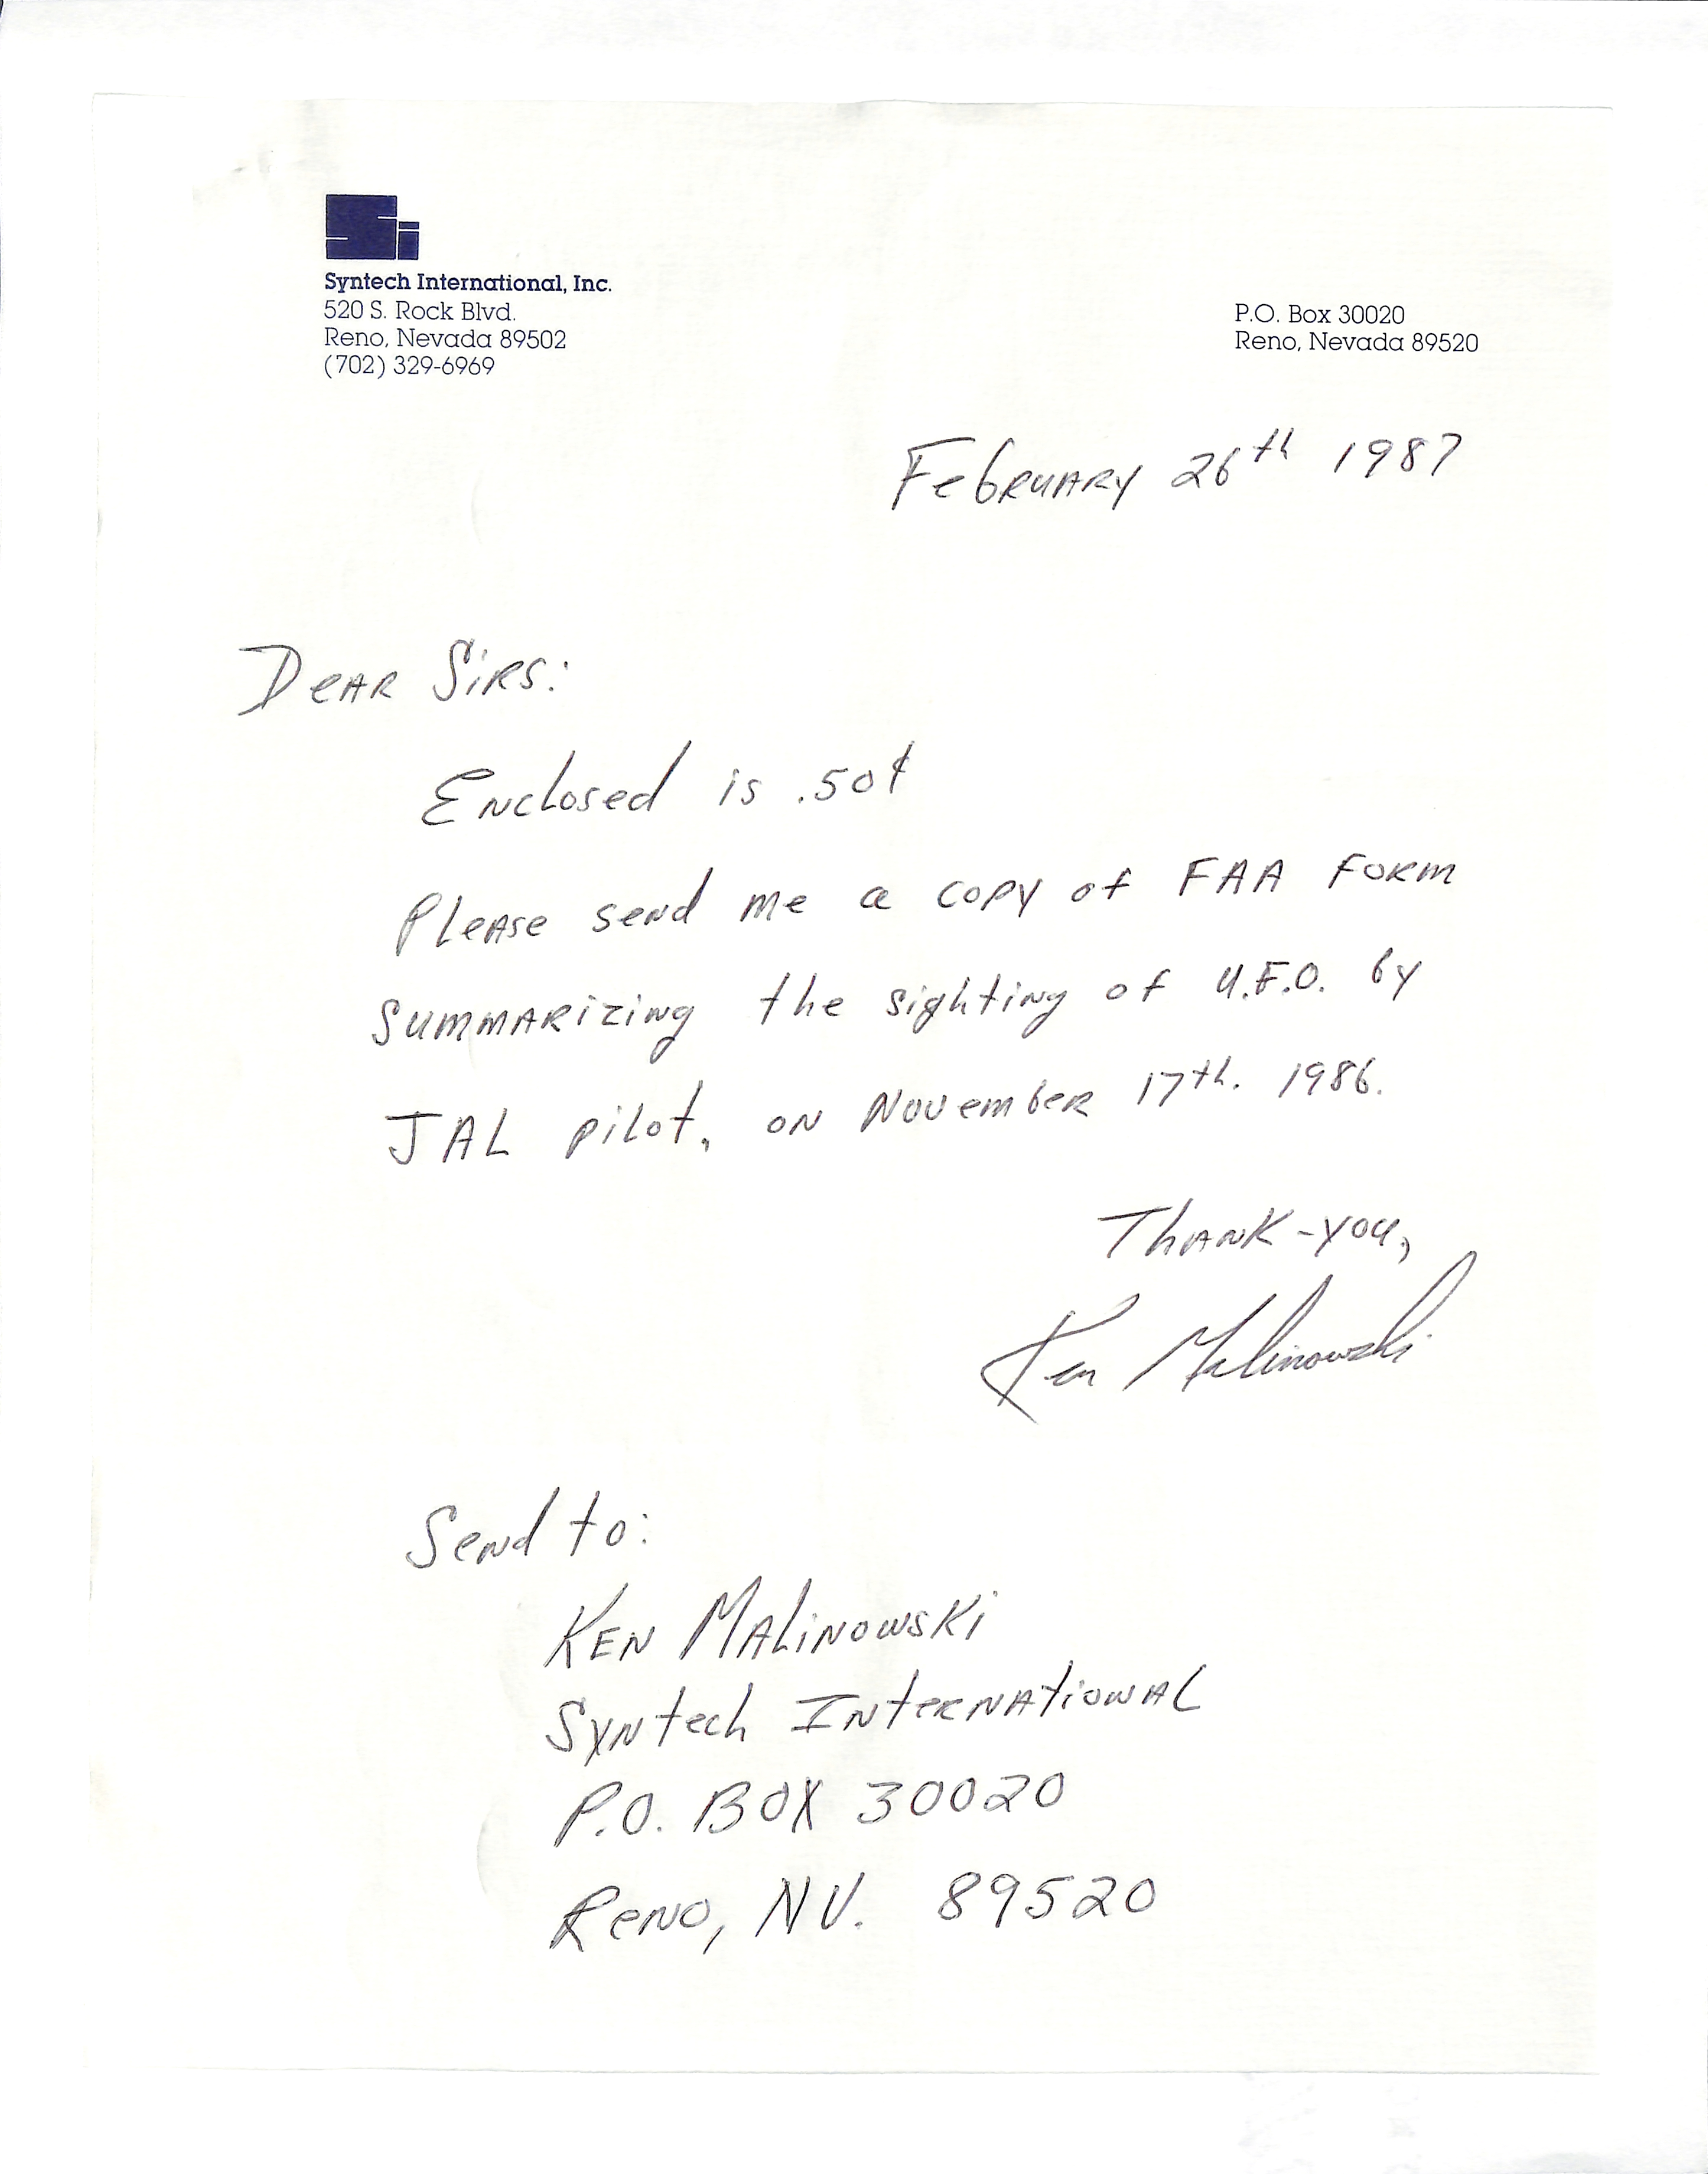 Si
Syntech International, Inc.
520 S. Rock Blvd.
Reno, Nevada 89502
(702) 329-6969
P.O. Box 30020
Reno, Nevada 89520
February 26th 1987
Dear Sirs:
Enclosed is .50¢
Please send me a copy of FAA form
summarizing the sighting of U.F.O. by
JAL pilot, on November 17th. 1986.
Thank-you,
Ken Malinowski
Send to:
Ken Malinowski
Syntech International
P.O. Box 30020
Reno, NV. 89520